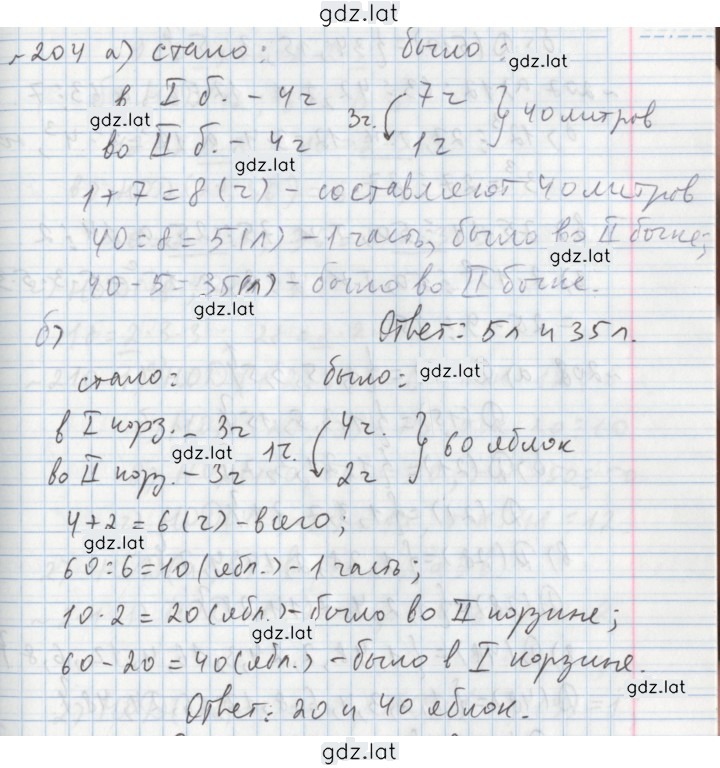 gdz.lat
№204 а) стало: было:
gdz.lat
в I б. - 4ч 3ч. 7ч } 40 литров
gdz.lat
во II б. - 4ч 1ч
gdz.lat
1 + 7 = 8 (ч) - составляют 40 литров
40 : 8 = 5 (л) - 1 часть, было во II бочке;
gdz.lat
40 - 5 = 35 (л) - было во II бочке.
gdz.lat
б) Ответ: 5л и 35л.
стало: было: gdz.lat
в I корз. - 3ч 1ч. 4ч. } 60 яблок
gdz.lat
во II корз. - 3ч 2ч
4 + 2 = 6 (ч) - всего;
gdz.lat
60 : 6 = 10 (ябл.) - 1 часть;
10 · 2 = 20 (ябл.) - было во II корзине;
gdz.lat
60 - 20 = 40 (ябл.) - было в I корзине.
gdz.lat
Ответ: 20 и 40 яблок.
gdz.lat